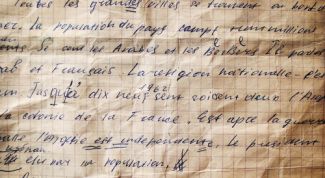 Toutes les grandes villes se trouvent au bord de
mer. La population du pays compte neuf million
Ce sont les Arabes et les Berbères. Ils parlent
et Français. La religion nationale
Jusqu'à dix neuf sent soicent deux l'
1962
la colonie de la France. Est apré la guerre
l'Algérie est independente. Le president
élu par la population.